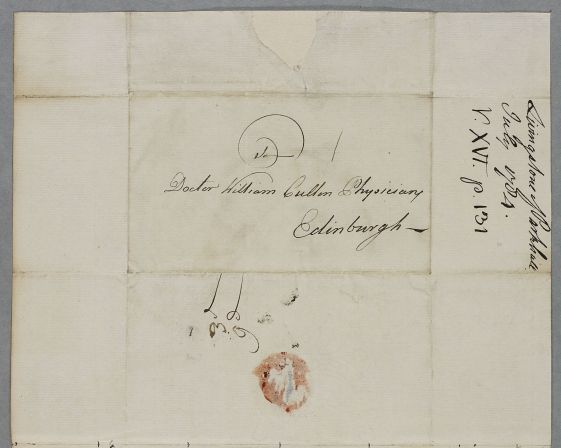 To
Doctor William Cullen Physician
Edinburgh
Livingstone of Parkhall
July 1784.
V. XVI. p. 131